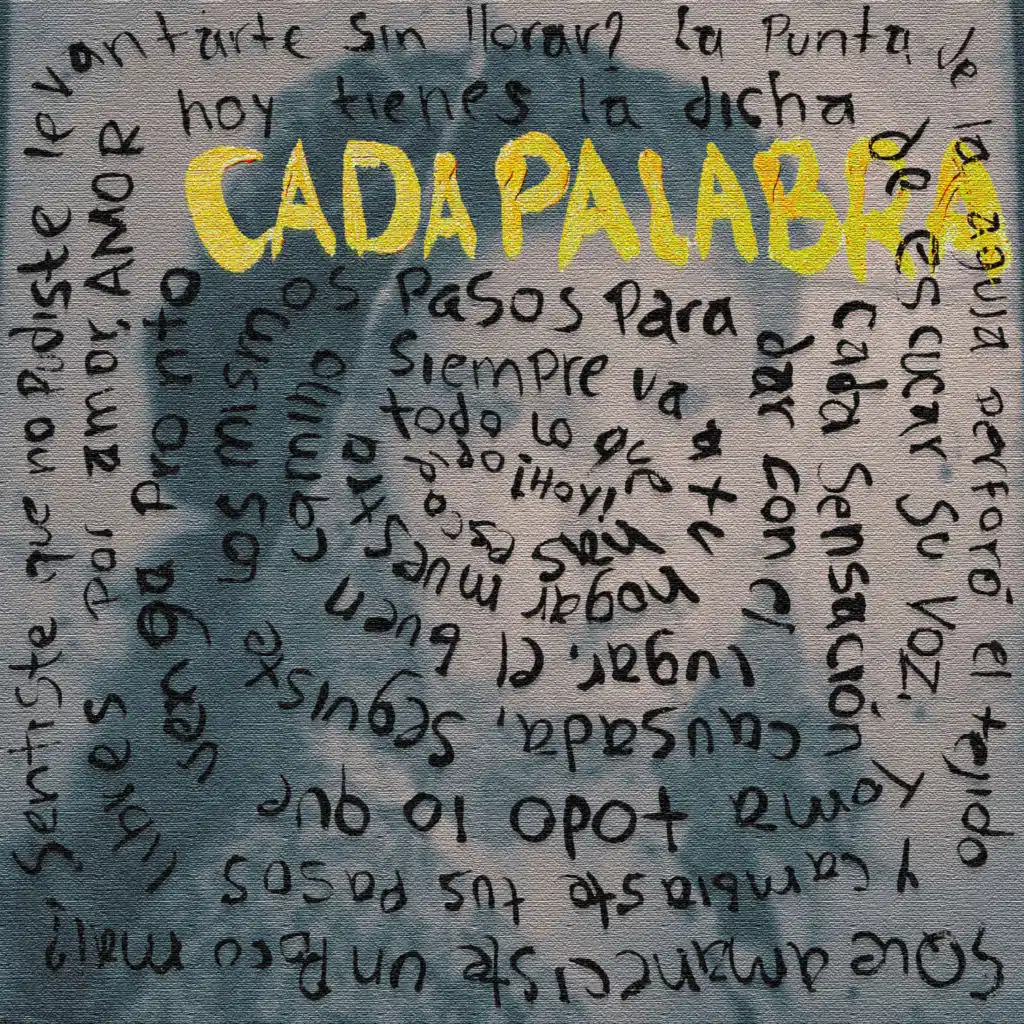 ¿Que amaneciste un Poco miel?
Sentiste que no Pudiste levantarte
sin llorar? La Punta de la
aguja perforó el tejido
y cambiaste tus pasos
libres por amor, AMOR
hoy tienes la dicha
de escucar su voz.
Toma todo lo que
venga pronto
CADA PALABRA
cada sensación
causada, seguiste
los mismos pasos para
dar con el
lugar, el buen
camino
siempre va a tu
hogar muestra
todo lo que
has
¡Hoy!